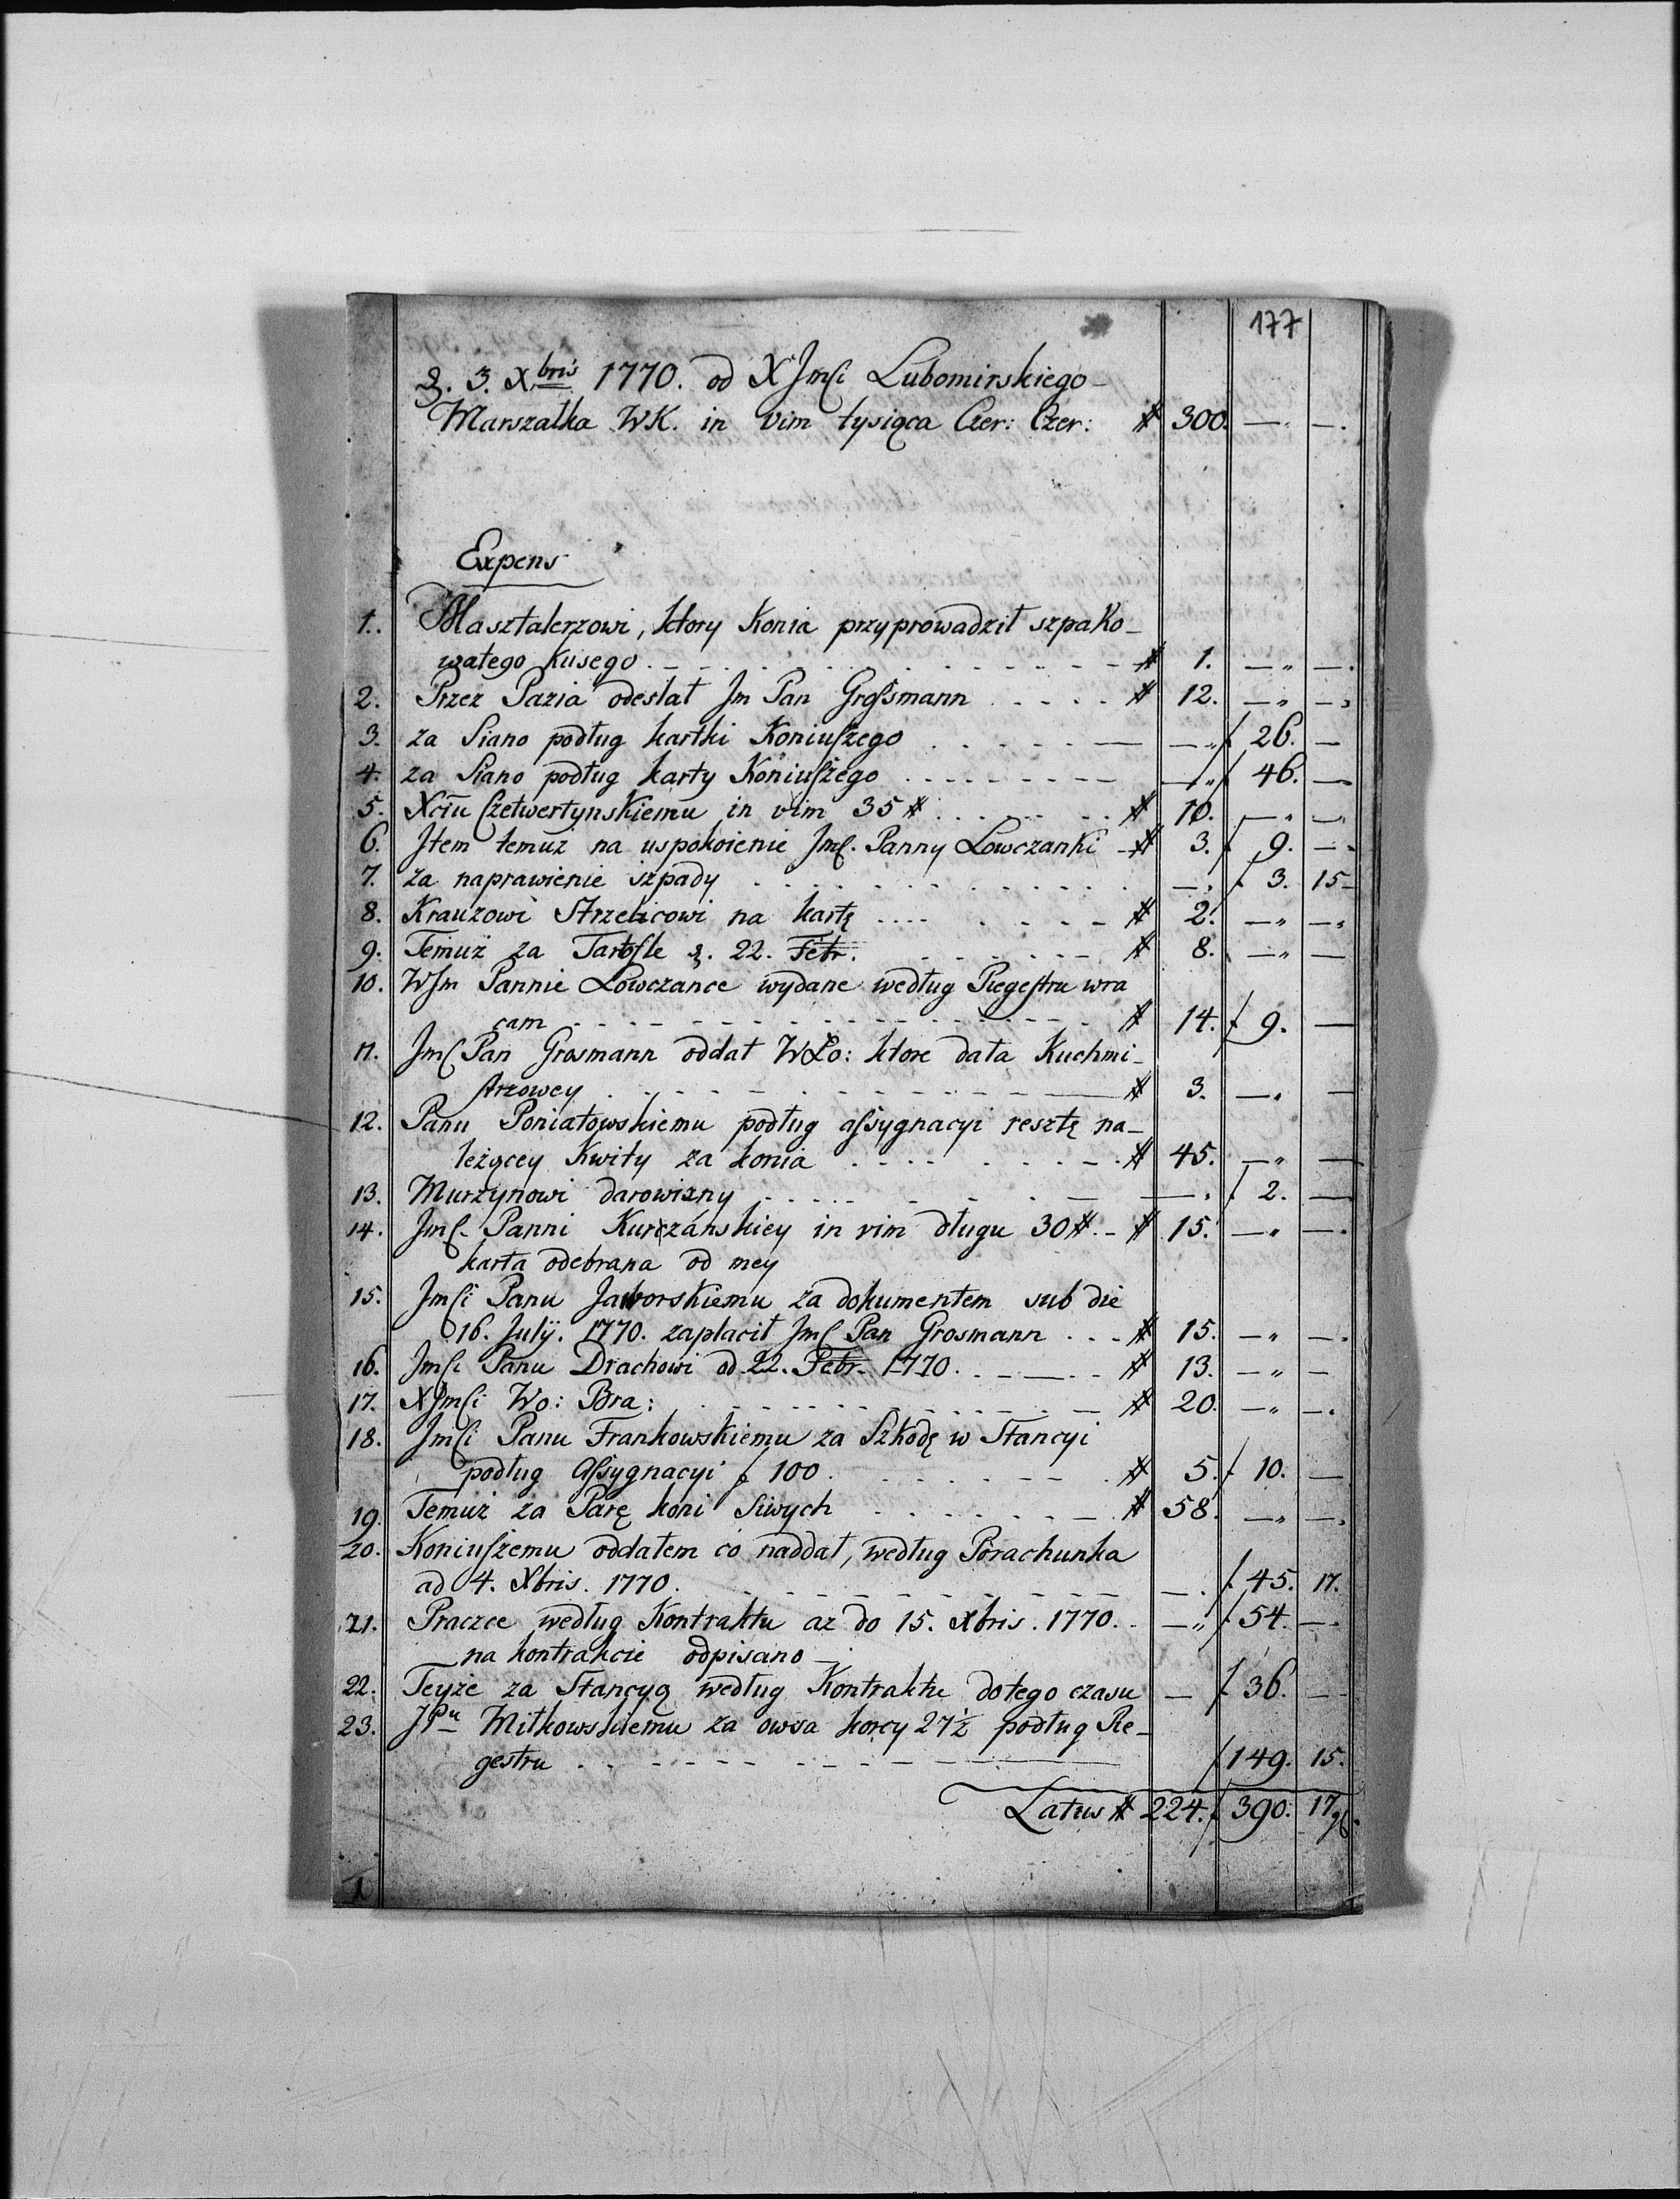 177
d. 3. Xbris 1770. od XJmſci Lubomirskiego
Marszałka WK. in vim tysiąca Czer: Czer: # 300. — —
Expens
1. Masztalerzowi, ktory Konia przyprowadził szpako-
watego Kusego # 1. — —
2. Przez Pazia odesłał Jm Pan Groſsmann # 12. — —
3. za Siano podług kartki Koniuſzego — f 26. —
4. za Siano podług karty Koniuſzego — f 46. —
5. Xciu Czetwertynskiemu in vim 35 # # 10. — —
6. Item temuż na uspokoienie Jmſ. Panny Łowczanki # 3. f 9. —
7. za naprawienie szpady — f 3. 15
8. Krauzowi Strzelcowi na kartę # 2. — —
9. Temuż za Tartofle d. 22. Febr. # 8. — —
10. WJm Pannie Łowczance wydane według Regeſtru wra
cam # 14. f 9. —
11. Jmſ Pan Grosmann oddał WXo: ktore dała Kuchmi-
ſtrzowey # 3. — —
12. Panu Poniatowskiemu podług aſsygnacyi resztę na-
leżącey Kwity za konia # 45. — —
13. Murzynowi darowizny — f 2. —
14. Jmſ. Panni Kurczanskiey in vim długu 30 # # 15. — —
karta odebrana od niey
15. Jmſci Panu Jaworskiemu za dokumentem sub die
16. Julij. 1770. zapłacił Jmſ Pan Grosmann # 15. — —
16. Jmſci Panu Drachowi od 22. Febr. 1770. # 13. — —
17. XJmſci Wo: Bra: # 20. — —
18. Jmſci Panu Frankowskiemu za Szkodę w Stancyi
podług Aſsygnacyi f 100. # 5. f 10. —
19. Temuż za Parę koni Siwych # 58. — —
20. Koniuſzemu oddałem co naddał, według Porachunka
ad 4. Xbris. 1770. — f 45. 17.
21. Praczce według Kontraktu az do 15. Xbris. 1770. — f 54. —
na kontrakcie odpisano
22. Teyże za Stancyą według Kontraktu dotego czasu — f 36. —
23. JPu Mitkowskiemu za owsa korcy 27½ podług Re-
gestru f 149. 15.
Latus # 224. f 390. 17